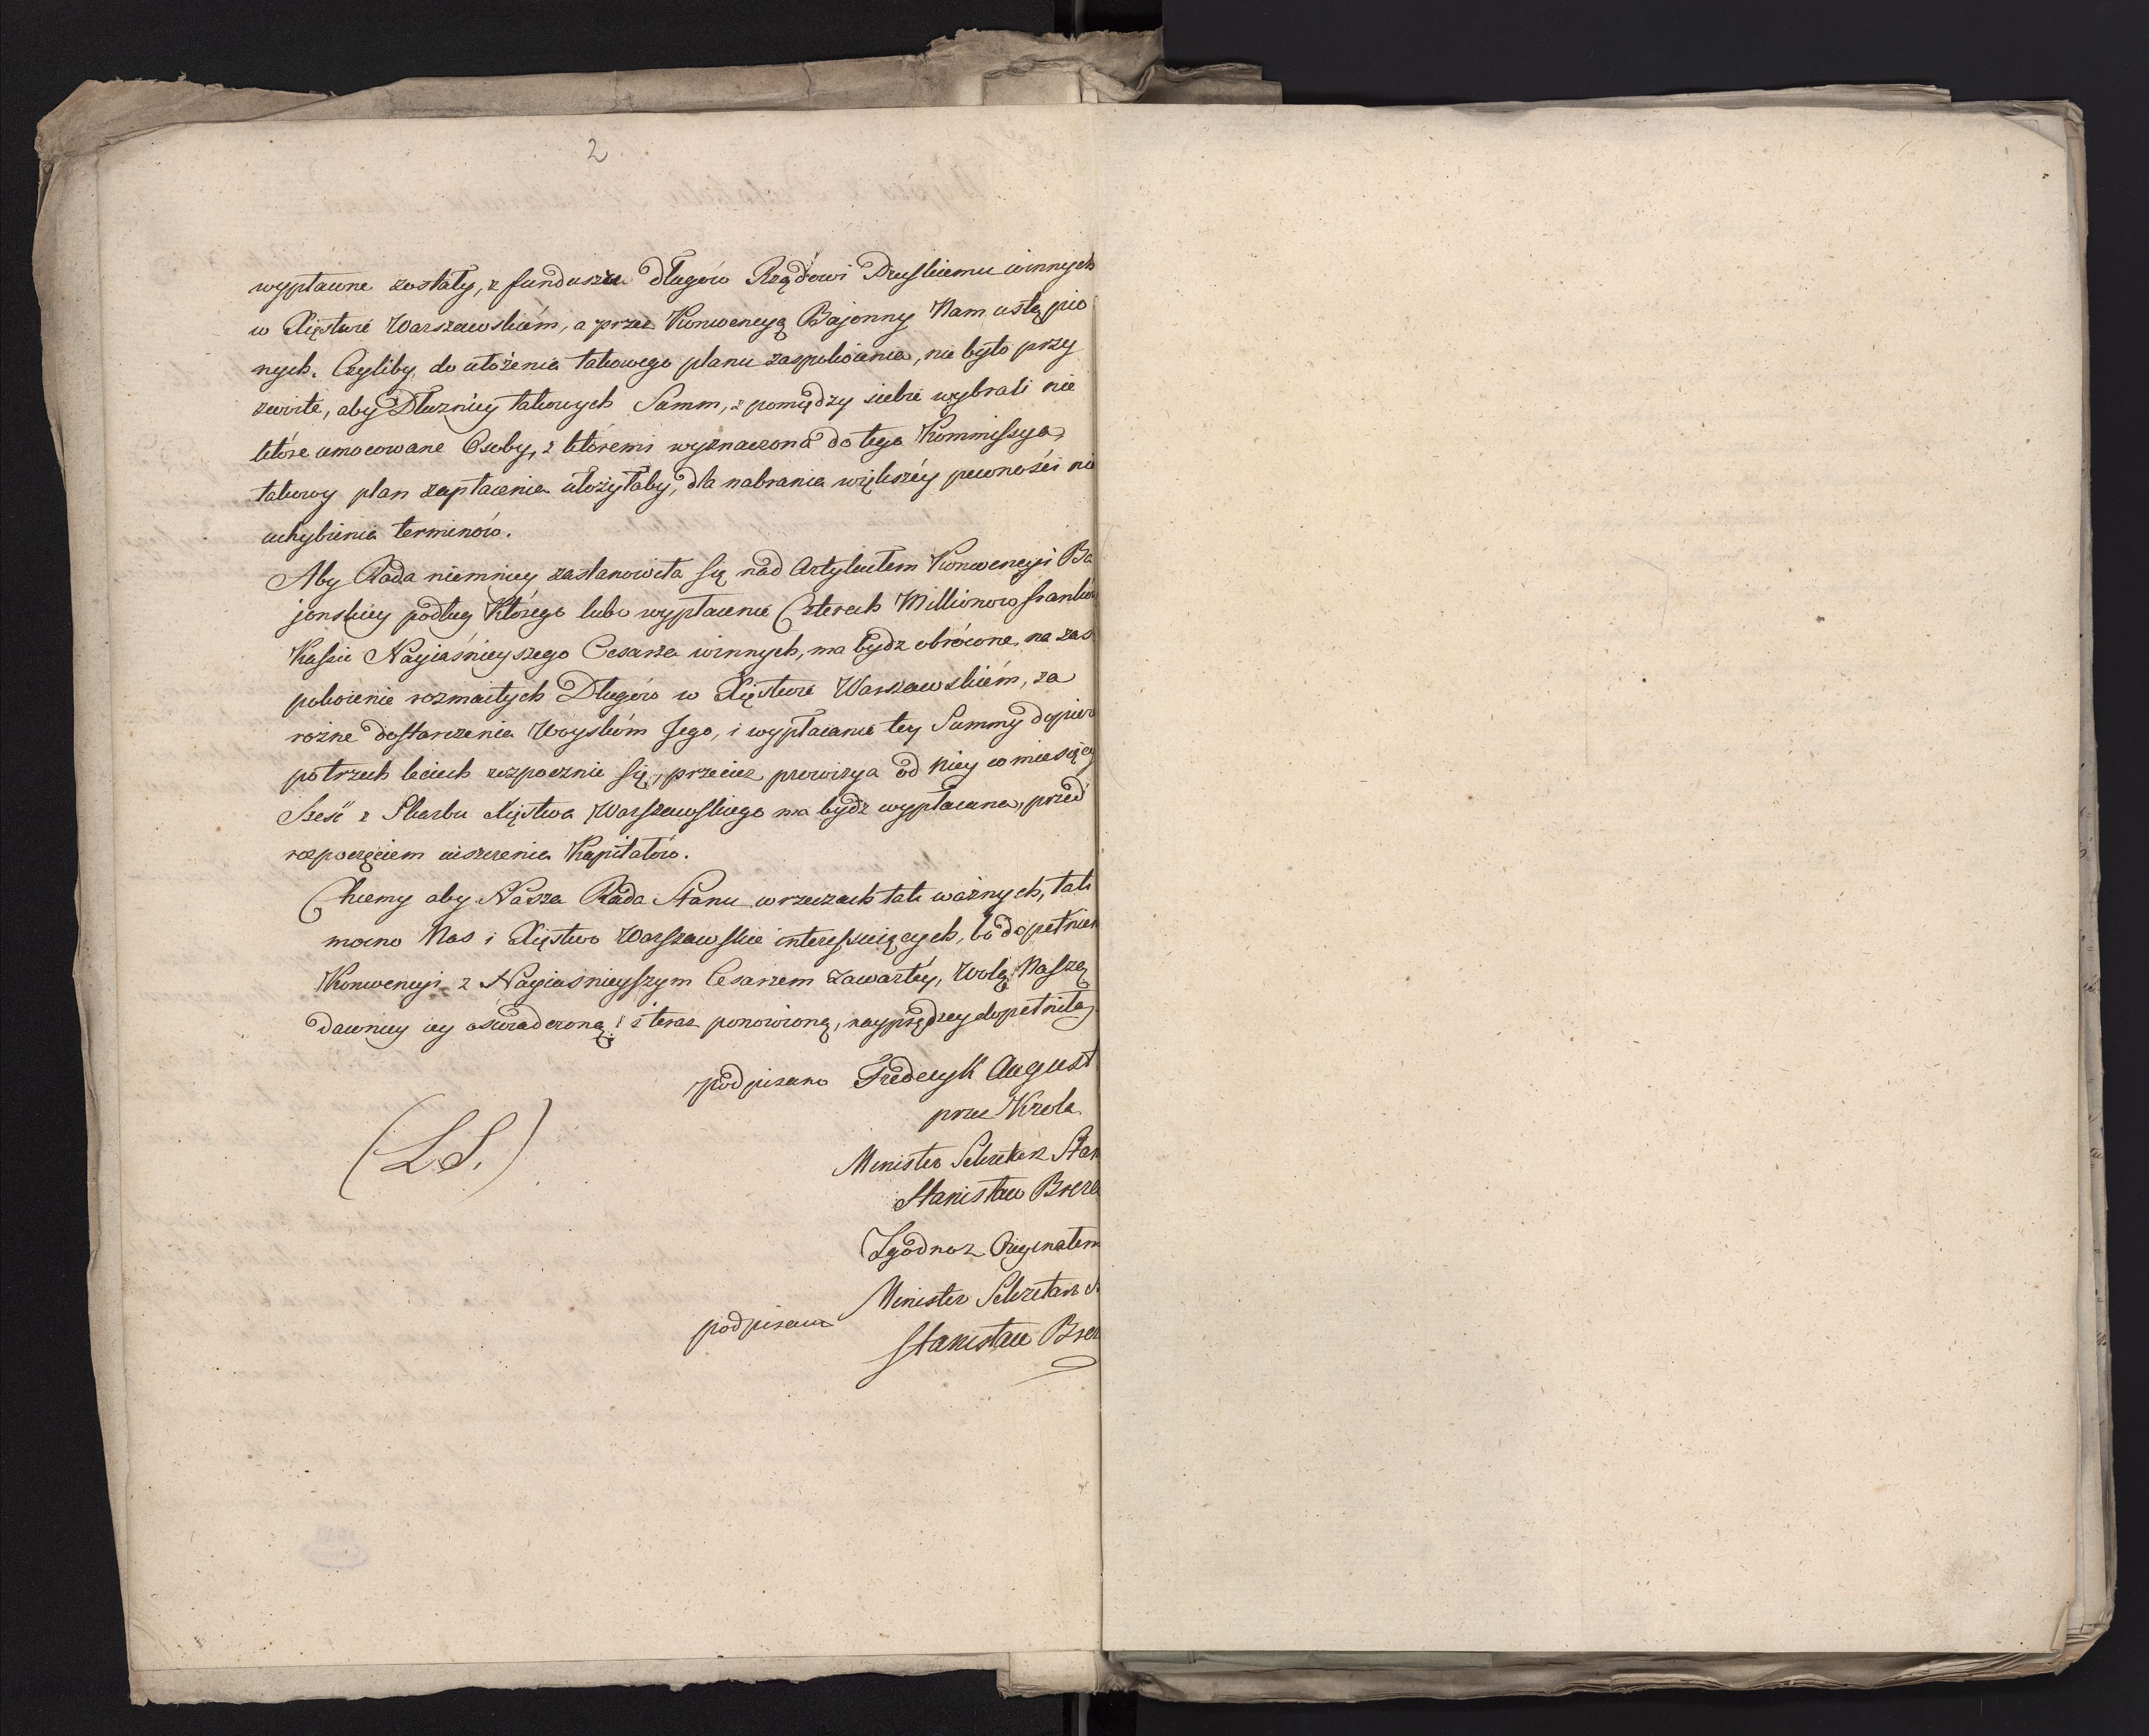 2
wypłacone zostały, z funduszu długów Rządowi Pruskiemu winnych
w Xięstwie Warszawskiém, a przez Konwencyą Bajonny Nam ustąpio
nych. Czyliby do ułożenia takowego planu zaspokoienia, nie było przy
zwoite, aby Dłużnicy takowych Summ, z pomiędzy siebie wybrali nie
które umocowane Osoby, z któremi wyznaczona do tego Kommissya,
takowy plan zapłacenia ułożyłaby, dla nabrania większéy pewności nie
uchybienia terminów.
Aby Rada niemniey zastanowiła się nad Artykułem Konwencyi Ba
jonskiey podług Którego lubo wypłacenie Czterech Millionow franków
Kassie Nayiaśnieyszego Cesarza winnych, ma bydz obrócone, na zas
pokoienie rozmaitych Długów w Xięstwie Warszawskiém, za
rożne dostarczenia Woyskóm Jego, i wypłacanie tey Summy dopiero
po trzech leciech rozpocznie się, przecież prowizya od niey co miesięcy
Sześć z Skarbu Xięstwa Warszawskiego ma bydz wypłacana, przed
rozpoczęciem uiszczenia Kapitałów.
Chcemy aby Nasza Rada Stanu w rzeczach tak ważnych, tak
mocno Nas i Xięstwo Warszawskie interessuiących, bo dopełnien
Konwencyi z Nayiasnieyszym Cesarzem zawartéy, Wolę Naszę
dawniey iey oświadczoną i teraz ponowioną, nayprędzey dopełniła.
podpisano Frederyk August
przez Krola
(L.S.)
Minister Sekretarz Stan
Stanisław Breza
Zgodno z Oryginałem
Minister Sekretarz S
podpisano
Stanisław Brez